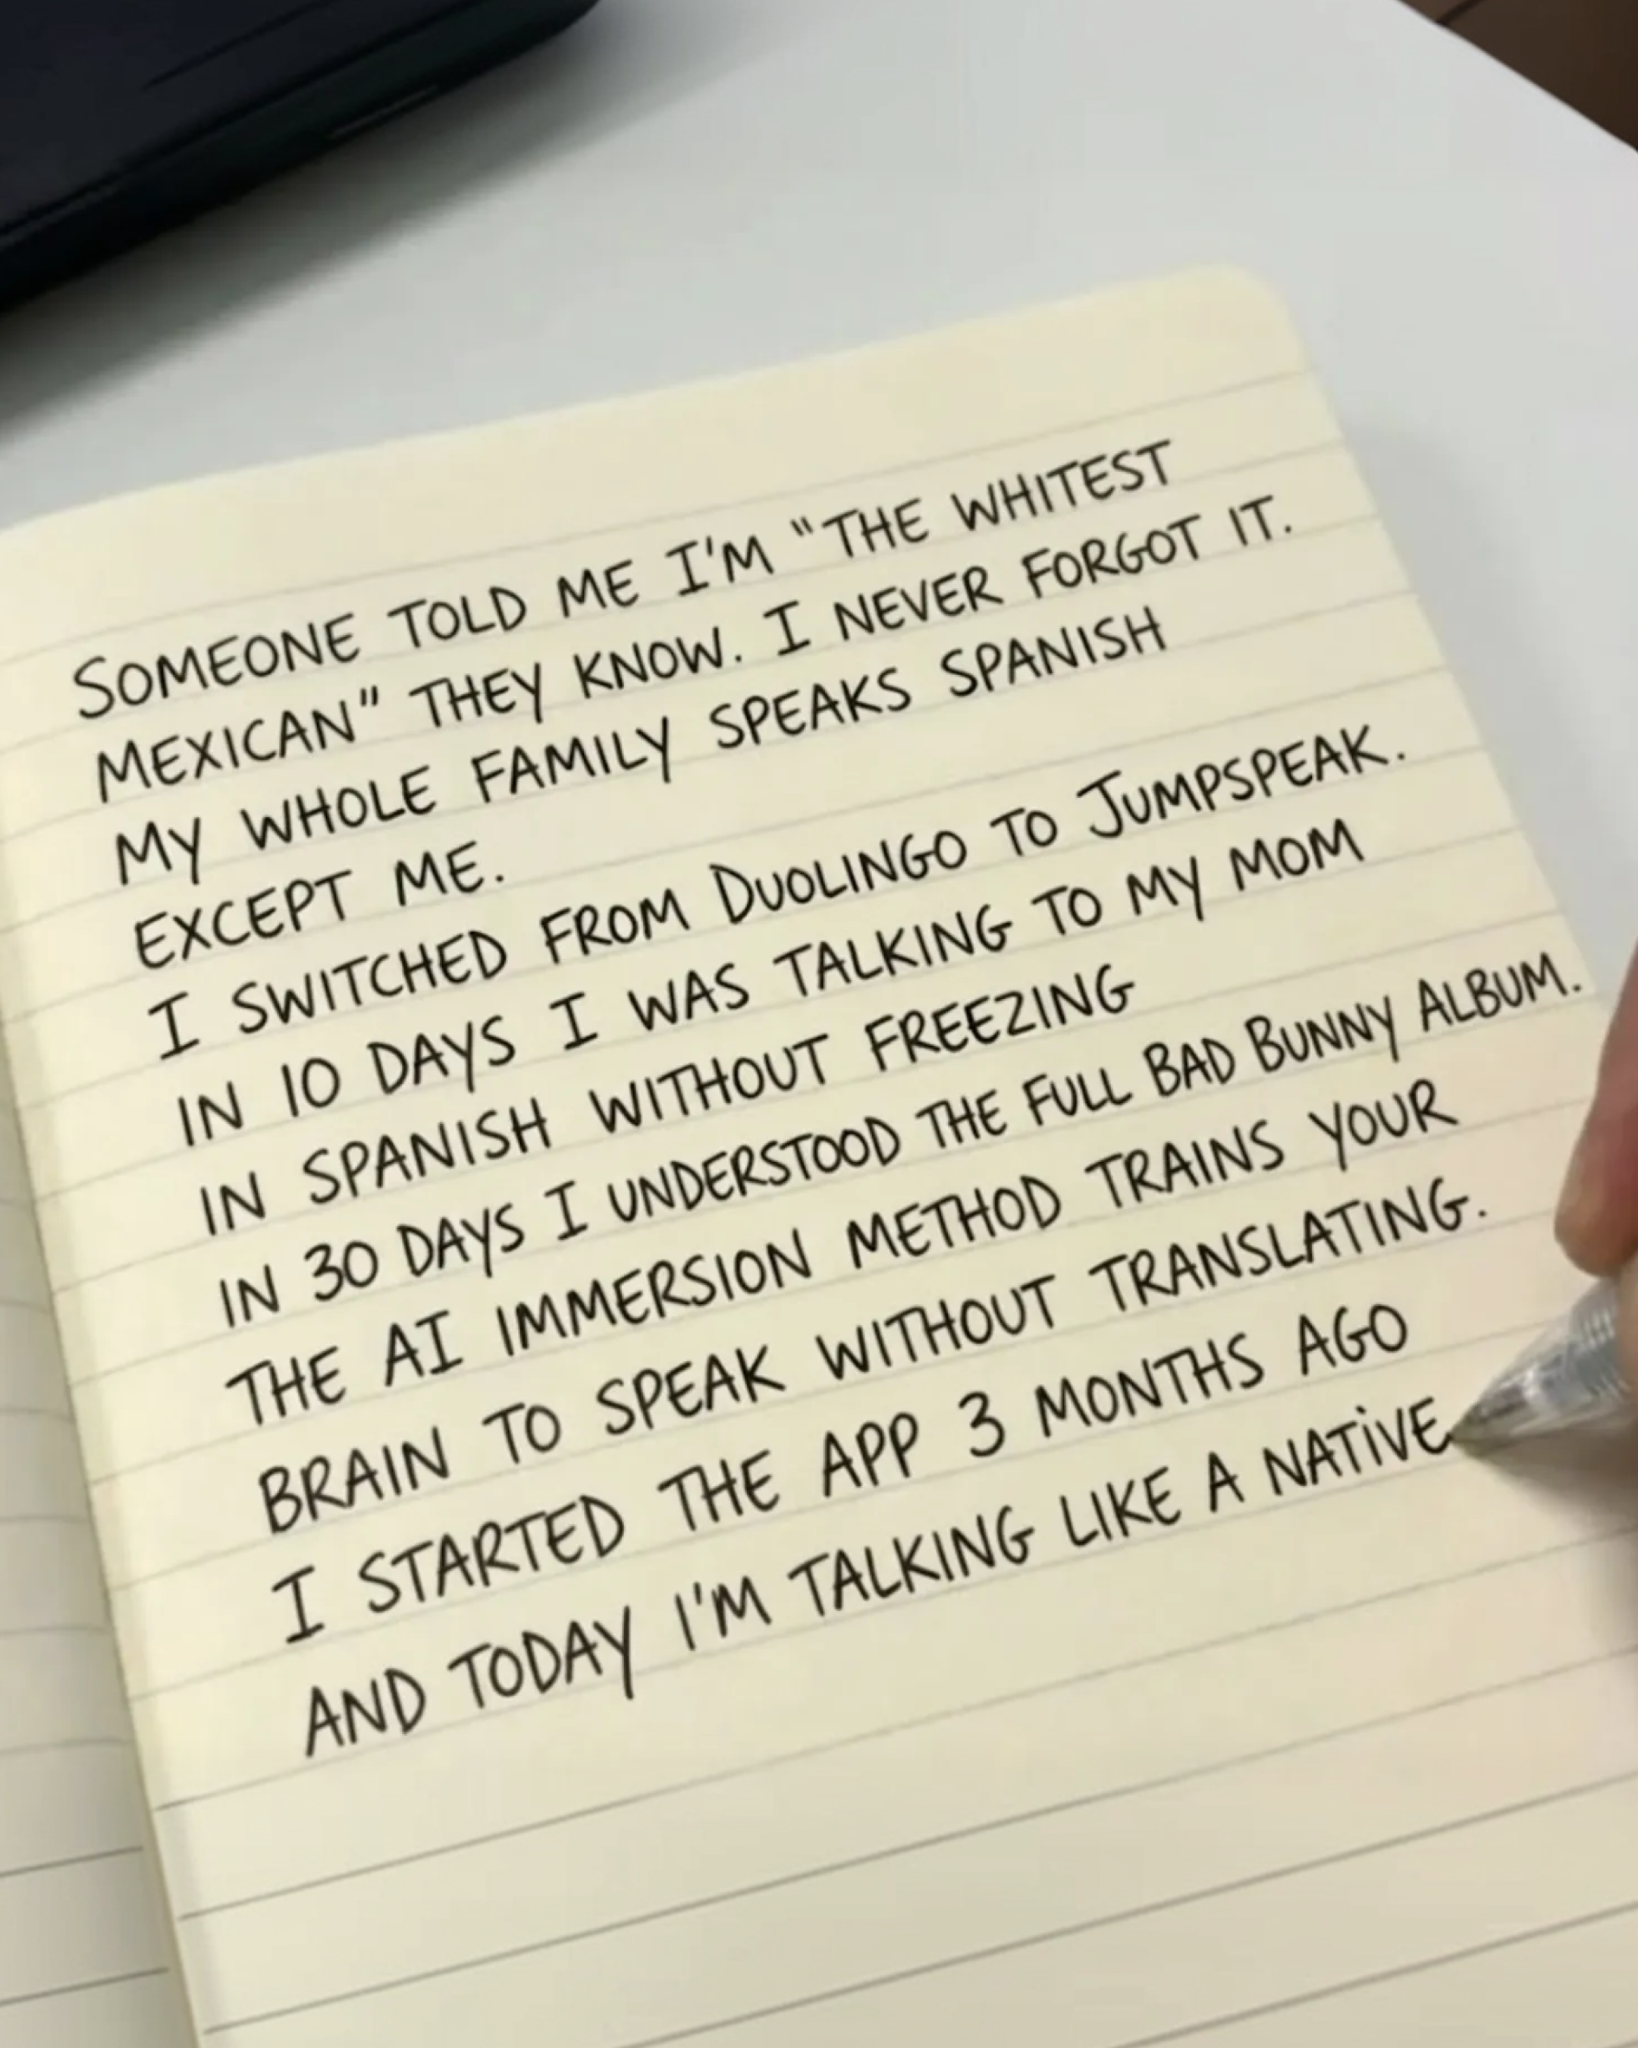 SOMEONE TOLD ME I'M "THE WHITEST
MEXICAN" THEY KNOW. I NEVER FORGOT IT.
MY WHOLE FAMILY SPEAKS SPANISH
EXCEPT ME.
I SWITCHED FROM DUOLINGO TO JUMPSPEAK.
IN 10 DAYS I WAS TALKING TO MY MOM
IN SPANISH WITHOUT FREEZING
IN 30 DAYS I UNDERSTOOD THE FULL BAD BUNNY ALBUM.
THE AI IMMERSION METHOD TRAINS YOUR
BRAIN TO SPEAK WITHOUT TRANSLATING.
I STARTED THE APP 3 MONTHS AGO
AND TODAY I'M TALKING LIKE A NATIVE